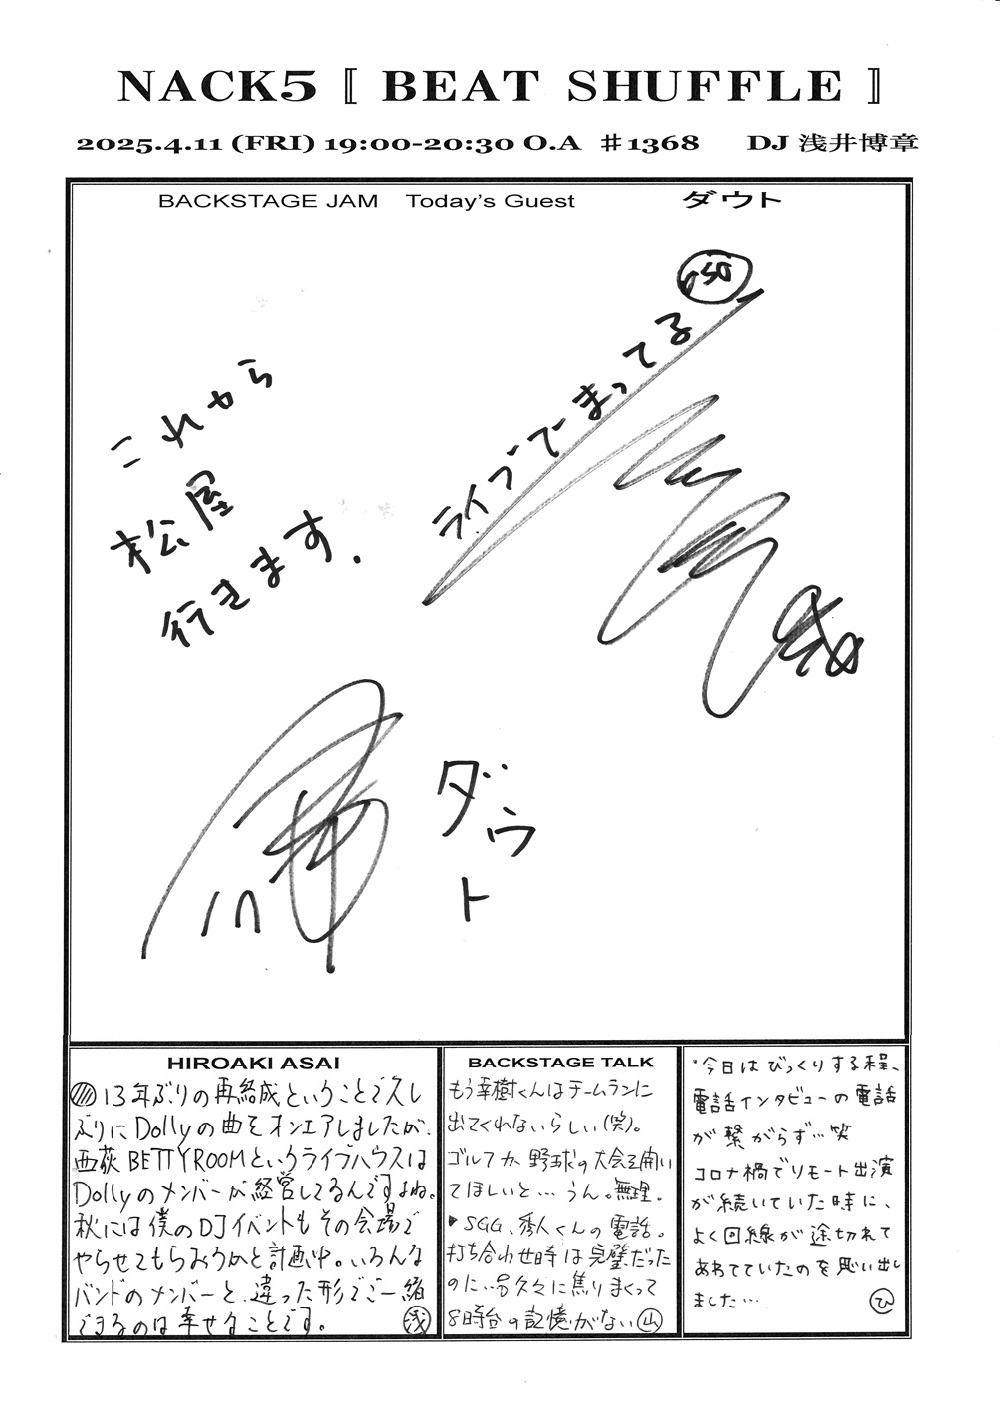 NACK5 〚 BEAT SHUFFLE 〛
2025.4.11 (FRI) 19:00-20:30 O.A ♯1368 DJ 浅井博章
BACKSTAGE JAM Today's Guest ダウト
これから
松屋
行きます.
ライブでまってる
ダウト
HIROAKI ASAI
13年ぶりの再結成ということで久し
ぶりにDollyの曲をオンエアしましたが、
西荻BETTYROOMというライブハウスは
Dollyのメンバーが経営してるんですよね。
秋には僕のDJイベントもその会場で
やらせてもらおうかと計画中。いろんな
バンドのメンバーと、違った形でご一緒
できるのは幸せなことです。 浅
BACKSTAGE TALK
もう幸樹くんはチームランに
出てくれないらしい(笑)。
ゴルフか野球の大会を開い
てほしいと…うん。無理。
SGG、秀人くんの電話。
打ち合わせ時は完璧だった
のに…久々に焦りまくって
8時台の記憶がない 山
・今日はびっくりする程、
電話インタビューの電話
が繋がらず…笑
コロナ禍でリモート出演
が続いていた時に、
よく回線が途切れて
あわてていたのを思い出し
ました… ひ